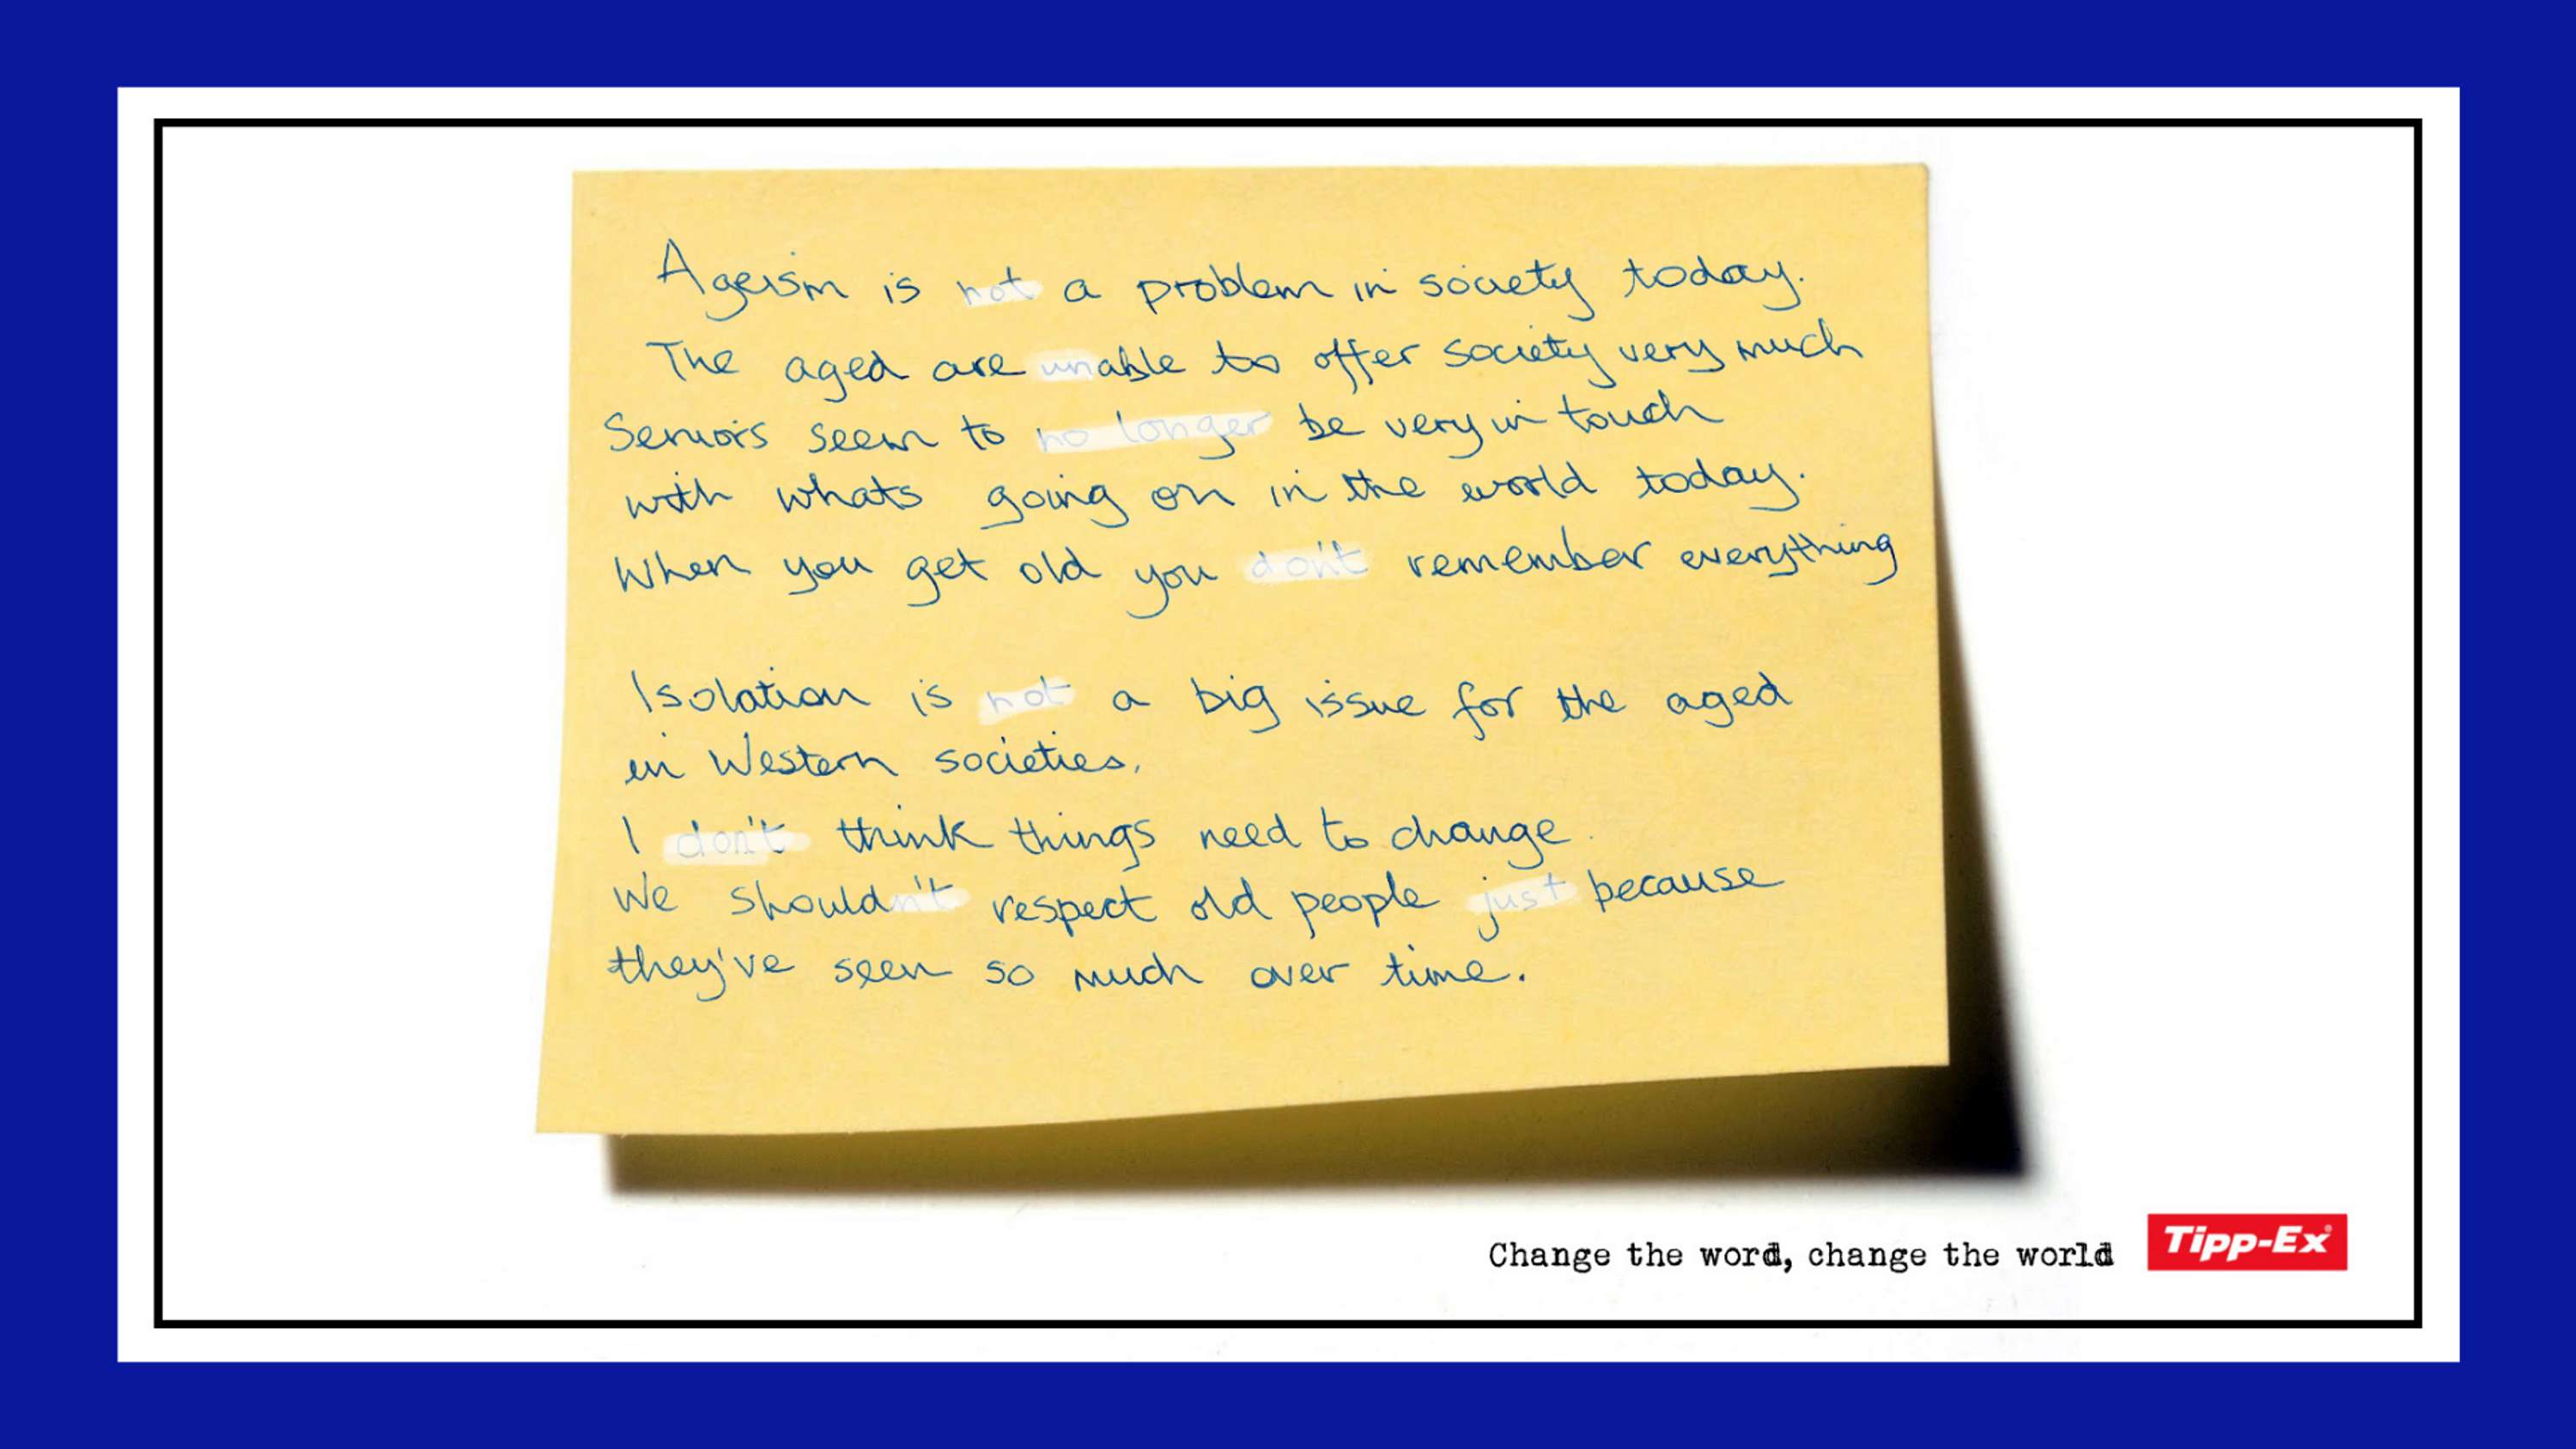 Ageism is not a problem in society today.
The aged are unable to offer society very much
Seniors seem to no longer be very in touch
with whats going on in the world today.
When you get old you don't remember everything
Isolation is not a big issue for the aged
in Western societies.
I don't think things need to change.
We shouldn't respect old people just because
they've seen so much over time.
Change the word, change the world
Tipp-Ex®